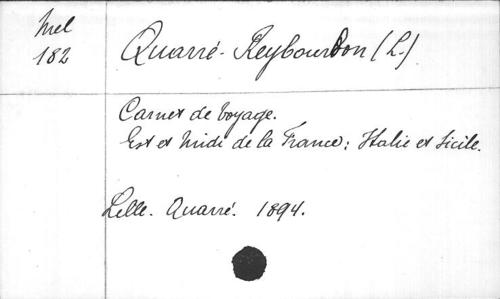 Mel
182
Quarré-Reybourbon (L.)
Carnet de Voyage.
Est et Midi de la France; Italie et Sicile.
Lille. Quarré. 1894.